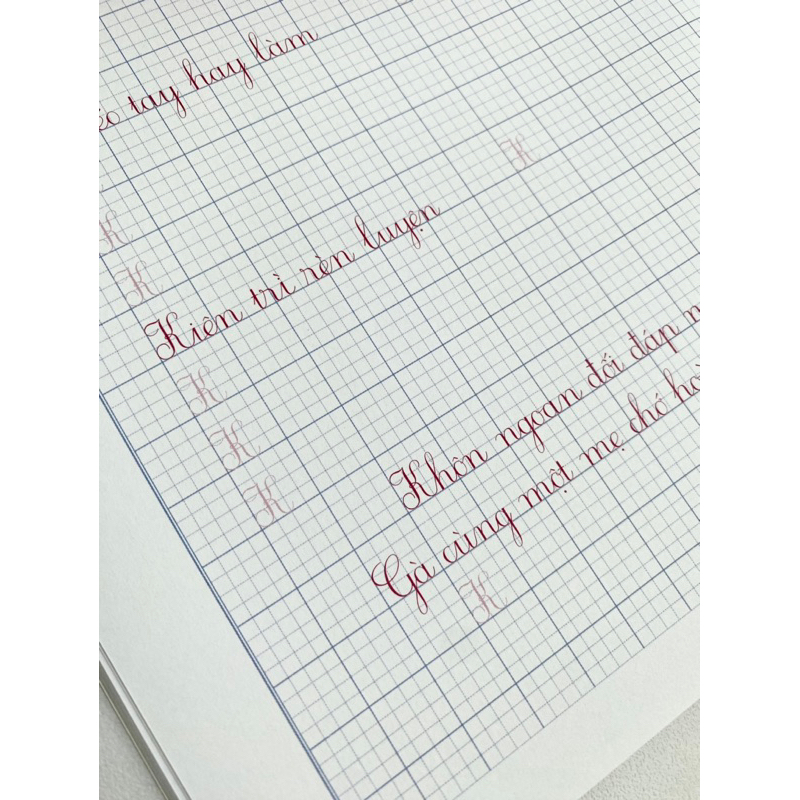 tay hay làm
K
K
K
Kiên trì rèn luyện
K
K
K
Khôn ngoan đối đáp
Gà cùng một mẹ chớ
K